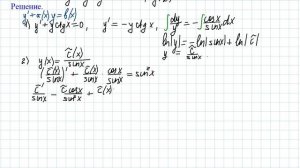 Решение.
y' + a(x) y = b(x)
1) y' + y ctg x = 0, y' = -y ctg x, ∫ dy/y = -∫ cos x/sin x dx
ln|y| = -ln|sin x| + ln|C̃|
y = C̃/sin x
2) y(x) = C̃(x)/sin x
(C̃(x)/sin x)' + C̃(x)/sin x · cos x/sin x = sin²x
C̃'/sin x - C̃ cos x/sin²x + C̃(x)